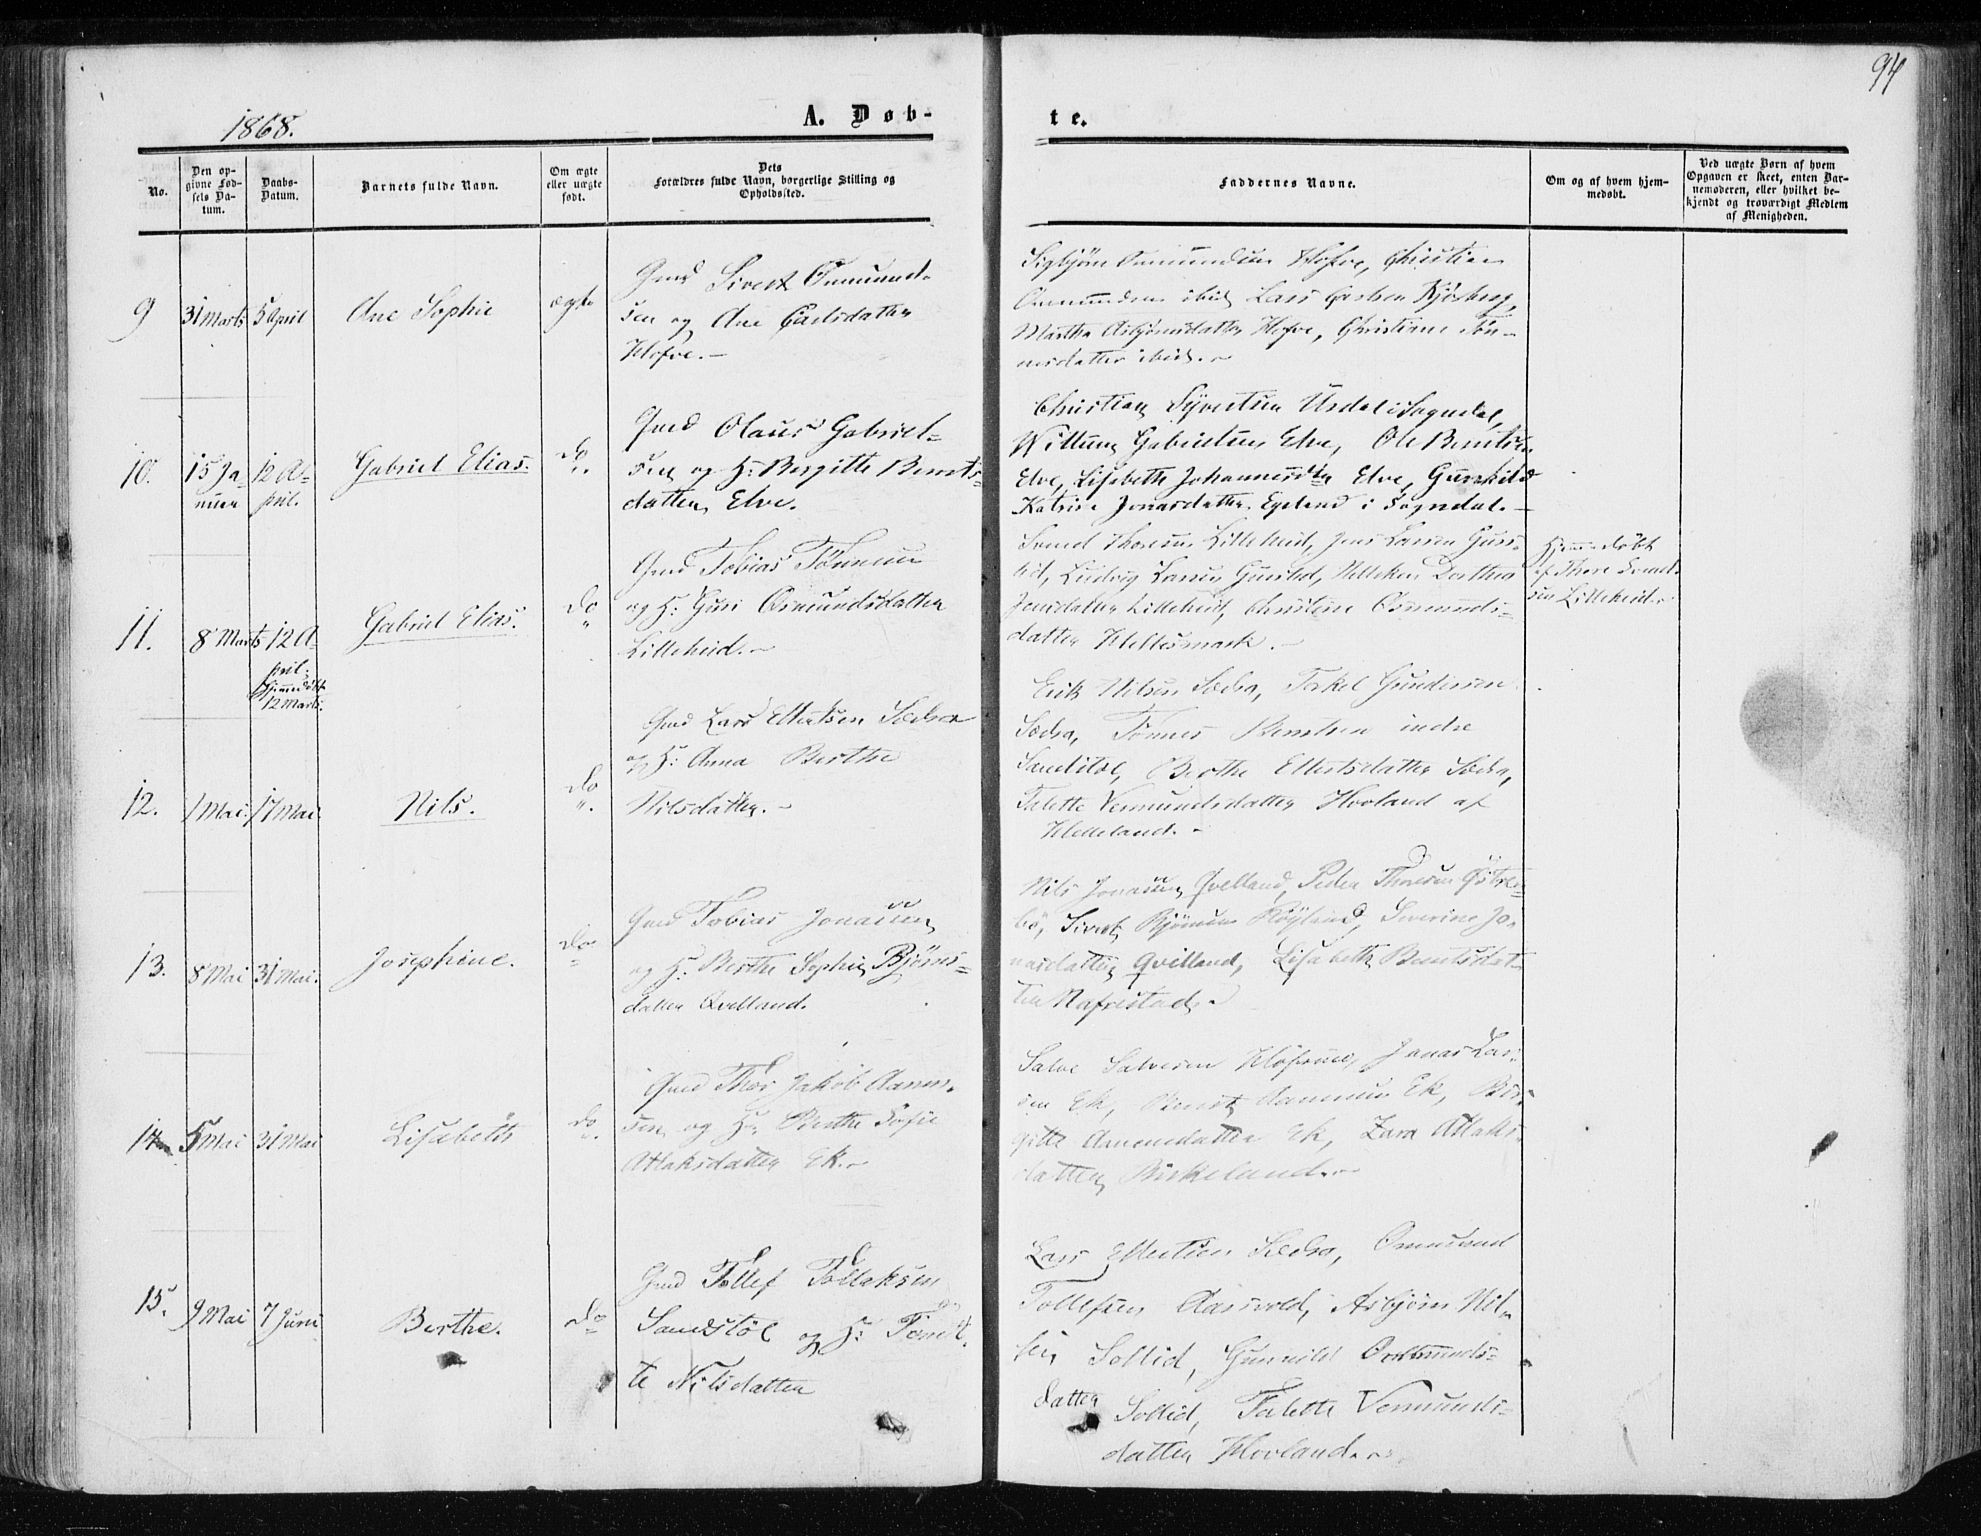 94
1868.
A. Døb-
te.
No.
Den opgivne Fødsels Datum.
Daabs-Datum.
Barnets fulde Navn.
Om ægte eller uægte født.
Dets Forældres fulde Navn, borgerlige Stilling og Opholdssted.
Faddernes Navne.
Om og af hvem hjemmedøbt.
Ved uægte Børn af hvem Opgaven er skeet, enten Barnemoderen, eller hvilket bekjendt og troværdigt Medlem af Menigheden.
9
31 Marts
5 April
Ane Sophie
ægte
Gmd Sivert Omund-
sen og Ane Carlsdatter
Hofve. —
Sigbjörn Omundsen Hofve, Christian
Omundsen ibid, Lars Carlsen
Martha Asbjörnsdatter Hofve, Christine Tön-
nesdatter ibid. —
10.
15 Ja-
nuar
12 A-
pril.
Gabriel Elias.
Do
Gmd Olaus Gabriel-
sen og H: Birgitte Bernts-
datter, Elve.
Christian Syvertsen Urdal i Sogndal,
Gabrielsen Elve, Ole Berntsen
Elve, Lisabeth Johannesdtr Elve, Gunhild
Katrine Jonasdatter Egeland i Sogndal. —
11.
8 Marts
12 A-
pril.
Hjemmedöbt
12 Marts.
Gabriel Elias.
Do
Gmd Tobias Tönnesen
og H: Guri Omundsdatter
Lilleheid. —
Svend Thoresen Lilleheid, Jens Larsen
Ludvig Larsen Dorthea
Jensdatter Lilleheid, Christine Omunds-
datter Hellesmark. —
Hjemmedöbt
af Thore Svend-
sen Lilleheid. —
12.
1 Mai
17 Mai
Nils.
Do
Gmd Lars Ellertsen Sædra
og H: Anna Berthe
Nilsdatter. —
Erik Nilsen Sædra, Torkel Gundersen
Sædra, Tönnes Berntsen indre
Sandstöl, Berthe Ellertsdatter Sædra,
Talette Vermundsdatter Hovland af
Helleland. —
13.
8 Mai
31 Mai.
Josephine.
Do
Gmd Tobias Jonassen
og H: Berthe Sophie Bjöns-
datter Qvelland.
Nils Jonassen Qvelland, Peder Thoresen Östre-
bö, Sivert Björnsen Severine Jo-
nasdatter Qvelland, Lisabeth Berntsdat-
ter Nafrestad. —
14
5 Mai
31 Mai
Lisabeth
Do
Gmd Thor Jakob Aanen-
sen og H: Berthe Sofie
Atlaksdatter Ek. —
Salve Salvesen Jonas Lar-
sen Ek, Bernt Aanensen Ek, Bir-
gitte Aanensdatter Ek, Zara Atlaks-
datter Birkeland. —
15.
9 Mai
7 Juni
Berthe.
Do
Gmd Tollef Tollaksen
Sandstöl og H:
te Nilsdatter
Lars Ellertsen Sædra, Omund
Tollefsen Aasvold, Asbjörn Nil-
sen Sollid, Gunnild Omunds-
datter Sollid, Talette Vermunds-
datter Hovland. —